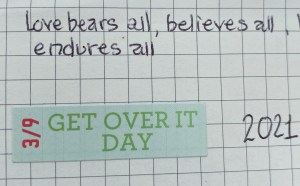 Love bears all, believes all,
endures all
3/9
GET OVER IT
DAY
2021